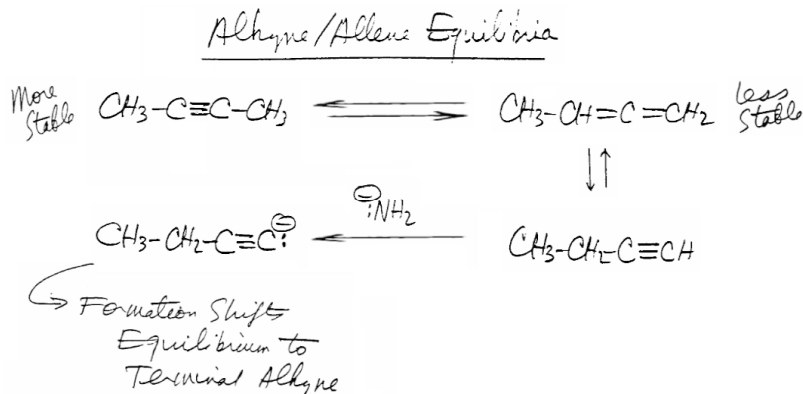 Alkyne/Allene Equilibria
More Stable CH3-C≡C-CH3 ⇌ CH3-CH=C=CH2 Less Stable
⇌
CH3-CH2-C≡C:⊖ ⊖:NH2 ← CH3-CH2-C≡CH
Formation Shifts
Equilibrium to
Terminal Alkyne